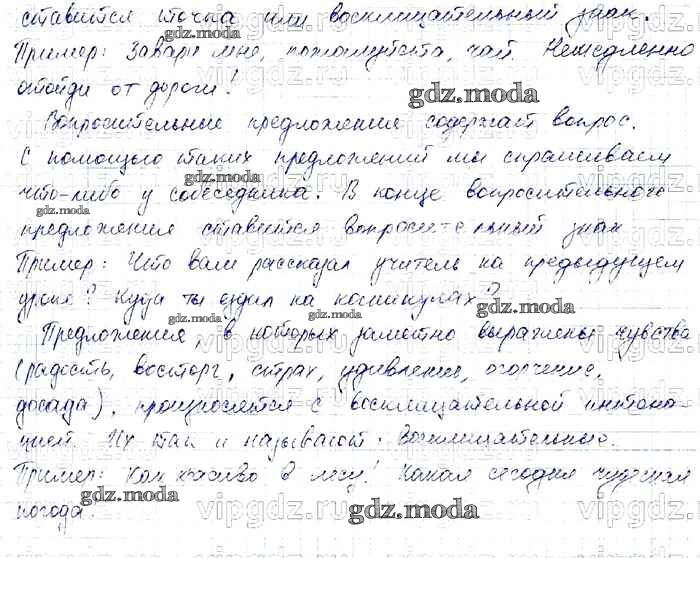 ставится точка или восклицательный знак.
Пример: Завари мне, пожалуйста, чай. Немедленно
отойди от дороги!
Вопросительные предложения содержат вопрос.
С помощью таких предложений мы спрашиваем
что-либо у собеседника. В конце вопросительного
предложения ставится вопросительный знак
Пример: Что вам рассказал учитель на предыдущем
уроке? Куда ты ездил на каникулах?
Предложения, в которых заметно выражены чувства
(радость, восторг, страх, удивление, огорчение,
досада), произносятся с восклицательной интона-
цией. Их так и называют. Восклицательные.
Пример: Как красиво в лесу! Какая сегодня чудесная
погода